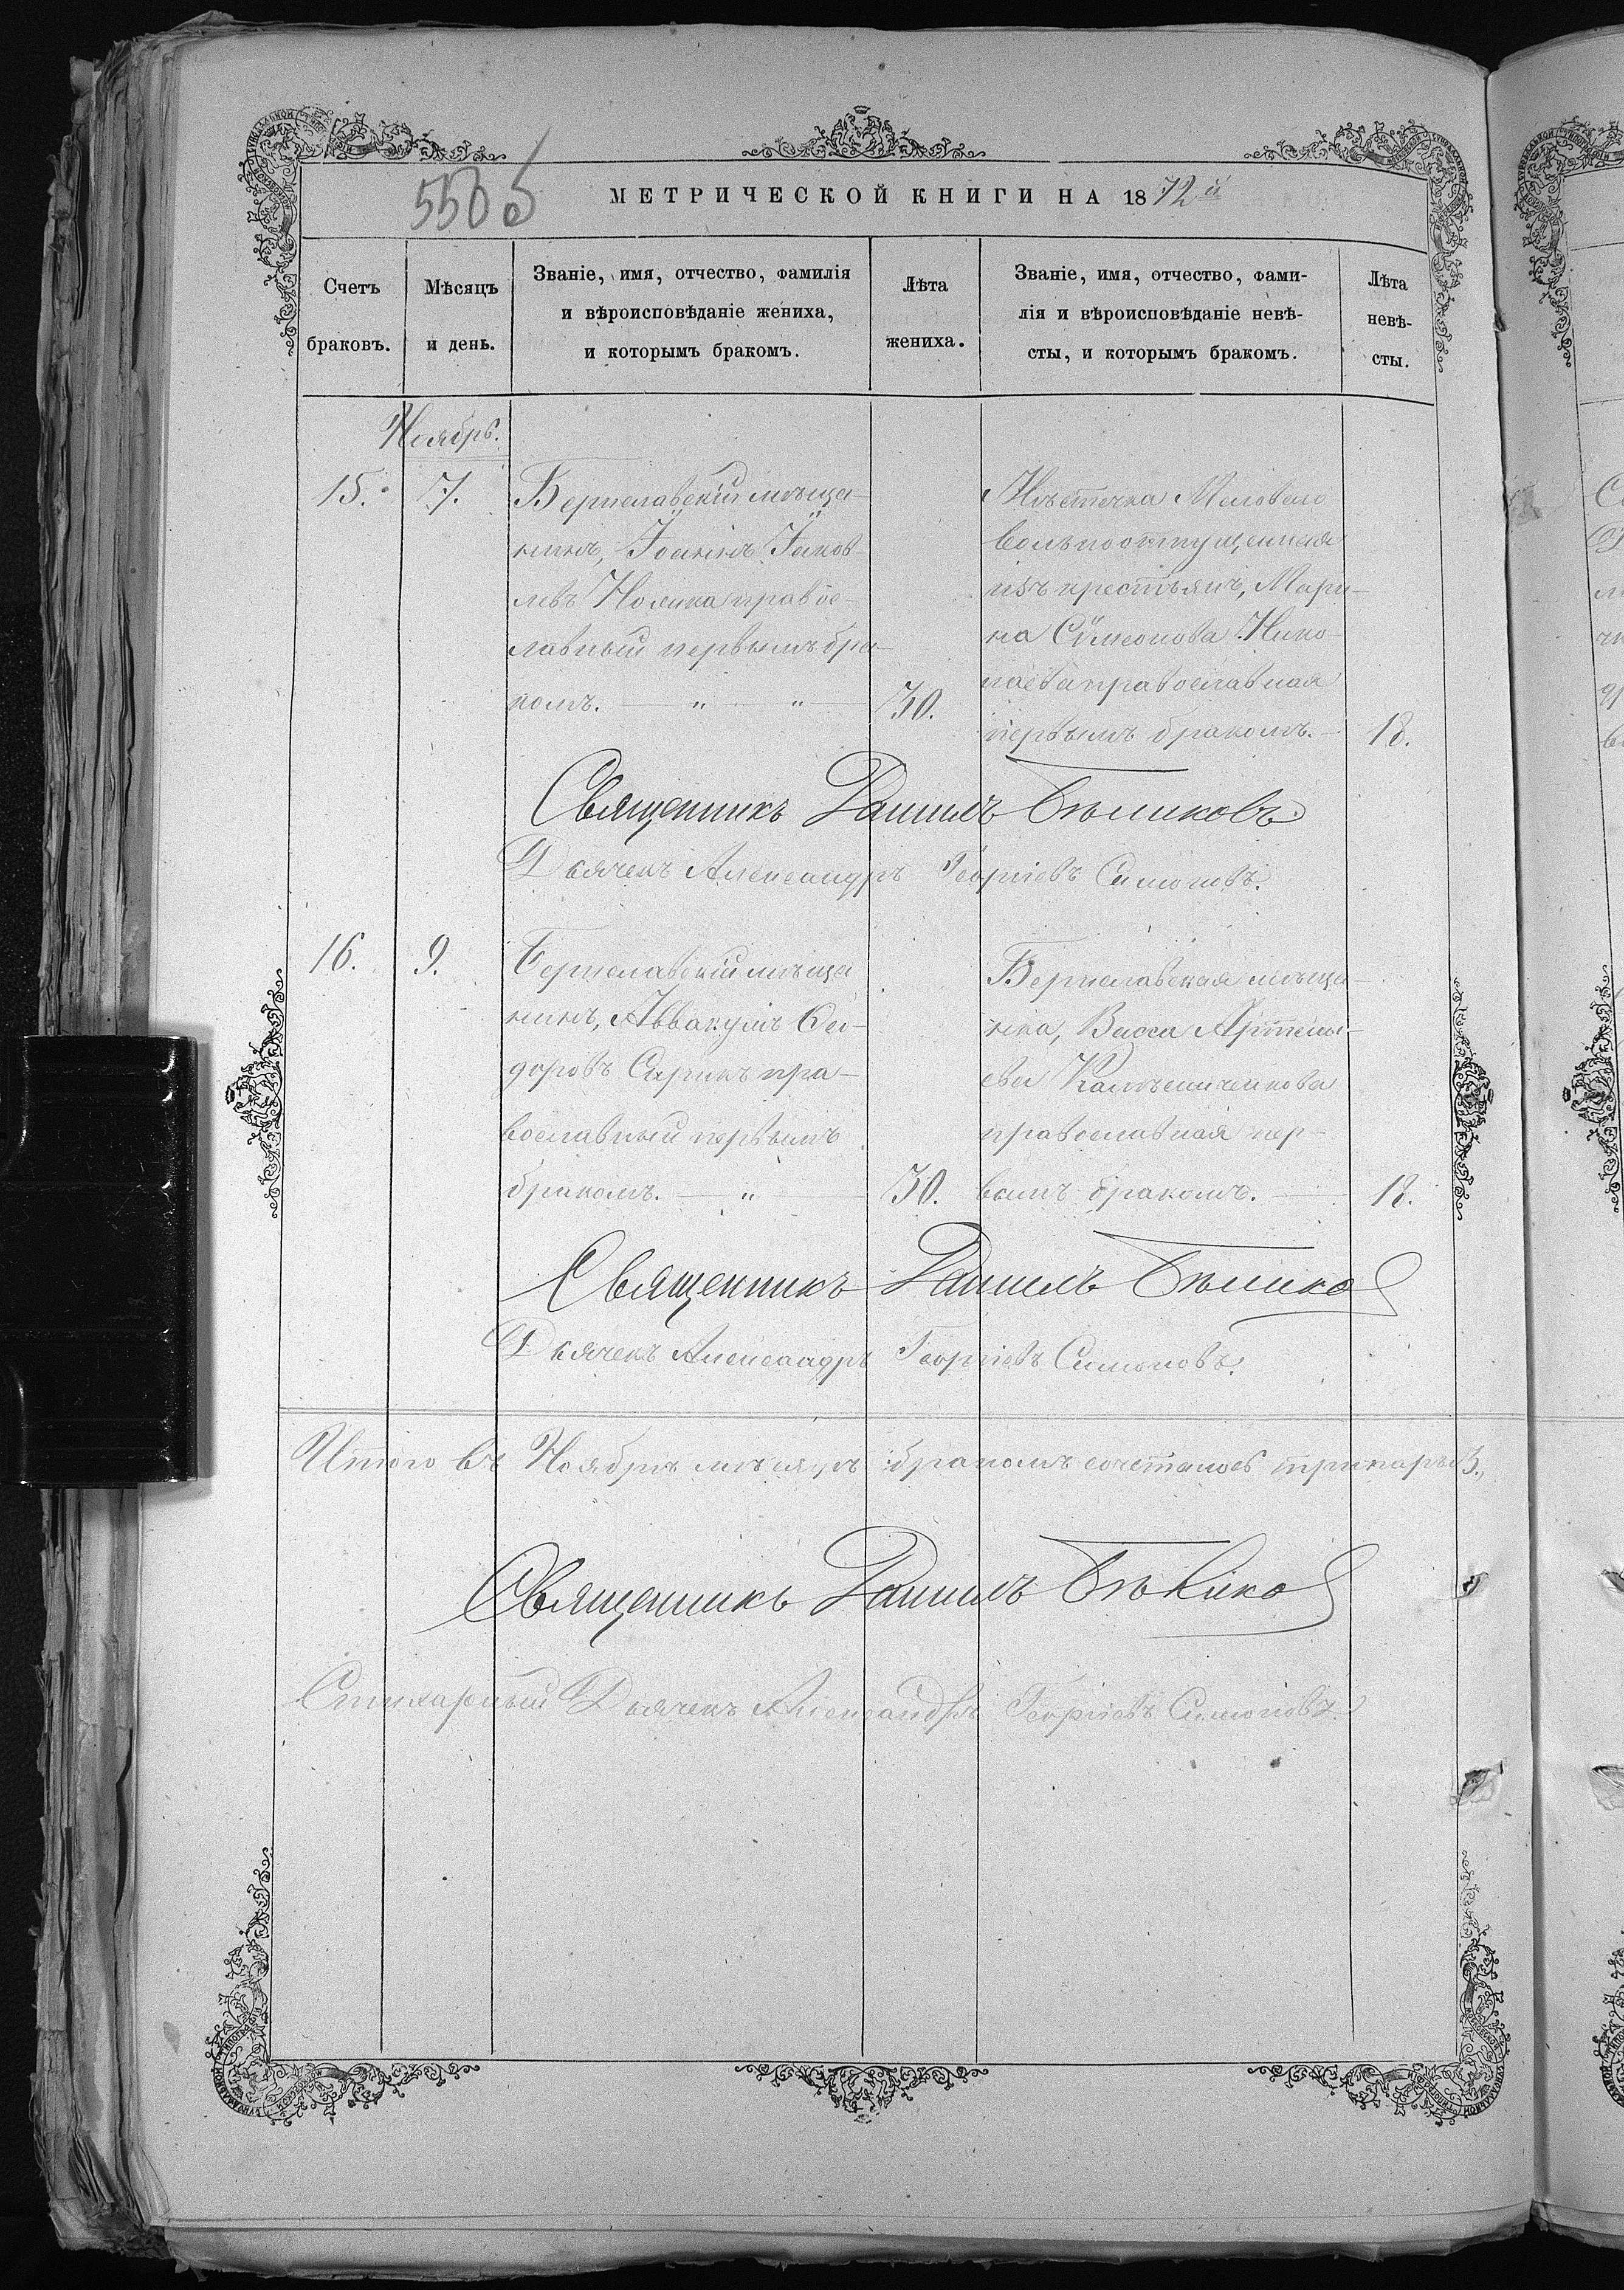 МЕТРИЧЕСКОЙ КНИГИ НА 1872й
Счетъ браковъ.
Мѣсяцъ и день.
Званіе, имя, отчество, фамилія
и вѣроисповѣданіе жениха,
и которымъ бракомъ.
Лѣта жениха.
Званіе, имя, отчество, фами-
лія и вѣроисповѣданіе невѣ-
сты, и которымъ бракомъ.
Лѣта невѣ-
сты.
Ноябрь.
15. 7.
Бериславскій мѣща-
нинъ, Іоаннъ Іаков-
левъ православ-
лавный первымъ бра-
комъ. — " — " — 30.
Мѣстечка
вольноотпущенная
изъ крестьянъ, Мари-
на Сѷмеонова Нико-
лаева православная
первымъ бракомъ. — 18.
Священникъ Даниилъ Бѣликовъ
Дьячекъ Александръ Георгіевъ Симоновъ.
16. 9.
Бериславскій мѣща
нинъ, Аввакумъ Си-
доровъ пра-
вославный первымъ
бракомъ. — " — 30.
Бериславская мѣща-
нка, Васса Артемь-
ева
православная пер-
вымъ бракомъ. — 18.
Священникъ Даниилъ Бѣликов
Дьячекъ Александръ Георгіевъ Симоновъ.
Итого въ Ноябрѣ мѣсяцѣ бракомъ сочеталось три пары 3.
Священникъ Даниилъ Бѣликов
Стихарный Дьячекъ Александръ Георгіевъ Симоновъ.